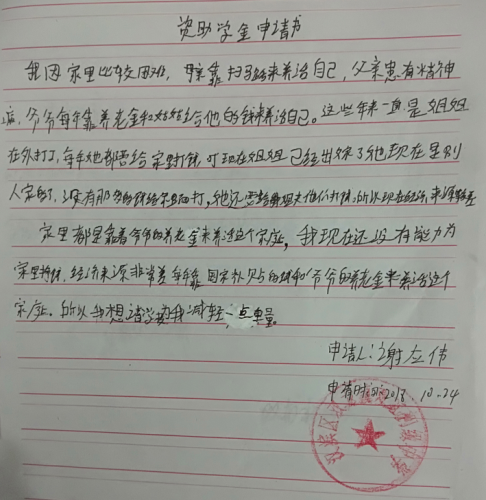 资助学金申请书
我因家里比较困难，母亲靠扫马路来养活自己，父亲患有精神
爷爷每年靠养老金和姑姑给他的钱来养活自己。这些年来一直是姐姐
在外打工，每年她都要给家里打钱，可现在姐姐已经出嫁了她现在是别
人家的了，没有那多的钱给家里面打，她还要给，所以现在经济来源较差
家里都是靠着爷爷的养老金来养活这个家庭，我现在还没有能力为
家里挣钱，经济来源非常差 每年靠国家补贝占的钱和爷爷的养老金来养活这个
家庭。所以我想请学校为我减轻一点重量。
申请人：谢应伟
申请时间：2018.10.24